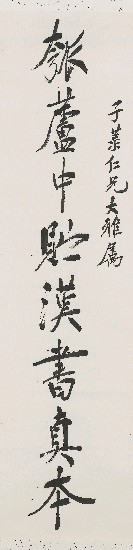 子葉仁兄大雅属
瓠蘆中貯漢書真本